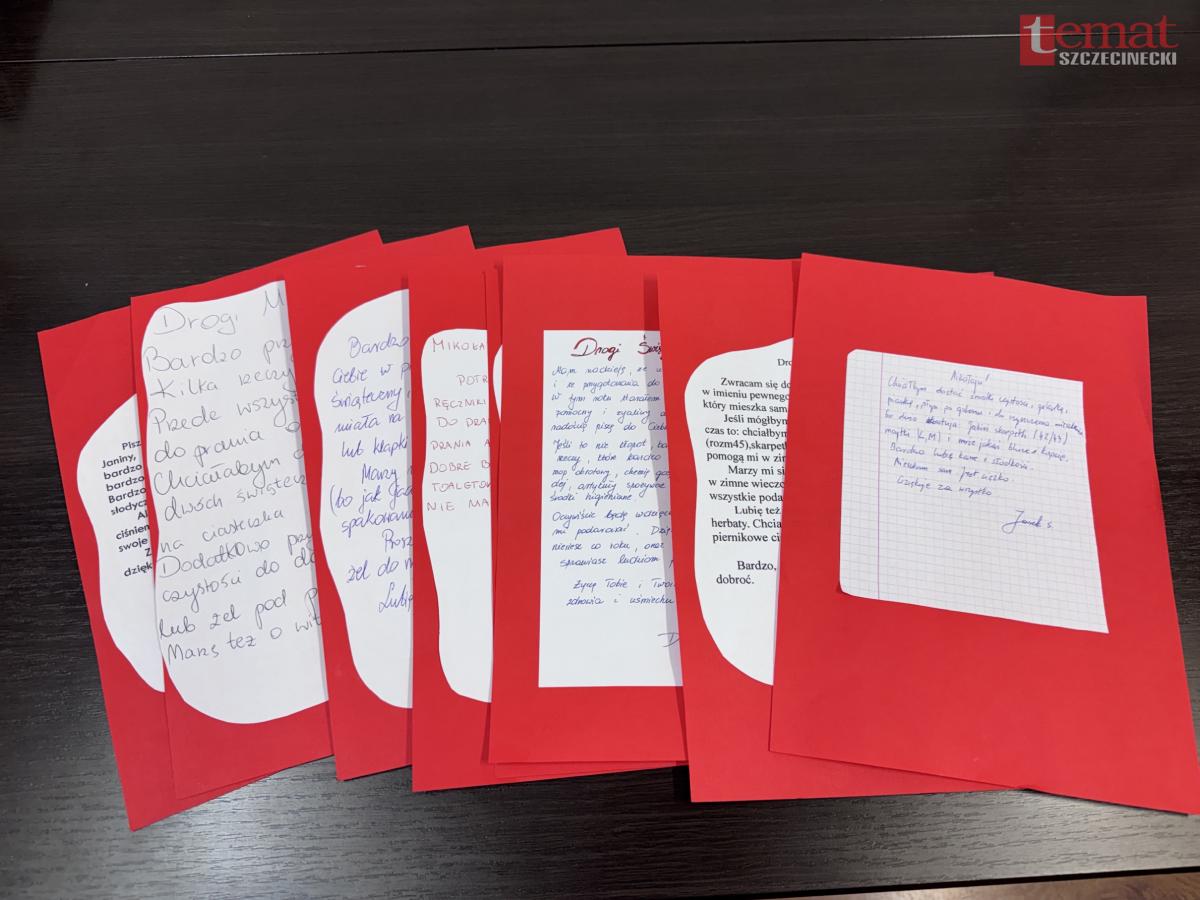 temat
SZCZECINECKI
Pisz
Janiny,
bardzo
bardzo
Bardzo
słodycz
ciśnien
swoje
Z
dzięk
Drogi M
Bardzo prz
Kilka rzeczy
Przede wszyst
do prania o
Chciałabym
dwóch świątecz
na ciasteczka
Dodatkowo przy
czystości do
lub żel pod p
Marzę też o wit
Bardzo
Ciebie w p
świąteczny,
miała na
lub klapki
Marzy
(bo jak
spakowana
Prosz
żel do m
Lubię
MIKOŁA
POTR
RĘCZNIKI
DO PRA
PRANIA A
DOBRE B
TOALETOW
NIE MA
Drogi Świę
Mam nadzieję, że u
i że przygotowania do
W tym roku starałem
pomocny i
nadzieją piszę do Ciebie
Jeśli to nie kłopot
rzeczy, które bardzo
mop obrotowy, chemię gos
olej, artykuły spożywcze
środki higieniczne
Oczywiście będę wdzięcz
mi podarować.
niesiesz co roku, oraz
sprawiasz ludziom
Życzę Tobie i Twoi
zdrowia i uśmiechu
D
Dro
Zwracam się do
w imieniu pewnego
który mieszka sam
Jeśli mógłbym
czas to: chciałbym
(rozm45),skarpet
pomogą mi w zim
Marzy mi się
w zimne wieczo
wszystkie poda
Lubię też
herbaty. Chcia
piernikowe ci
Bardzo,
dobroć.
Mikołaju!
Chciałbym dostać środki czystości, gąbki,
proszki, płyn po goleniu i do
bo dużo kosztują. Jakieś skarpetki (42/43)
majtki (L,M) i może jakieś bluzę i kapcie.
Bardzo lubię kawę i słodkości.
Mieszkam sam
Dziękuję za wszystko
Janek S.